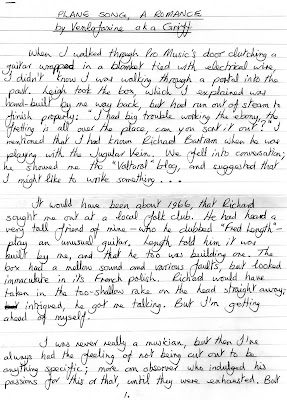 PLANE SONG, A ROMANCE
by Venlafaxine aka Griff
When I walked through Pro Music's door clutching a
guitar wrapped in a blanket tied with electrical wire,
I didn't know I was walking through a portal into the
past. Leigh took the box, which I explained was
hand-built by me way back, but had run out of steam to
finish properly: I had big trouble working the ebony, the
fretting is all over the place, can you sort it out? I
mentioned that I had known Richard Bartram when he was
playing with the Jugular Vein. We fell into conversation;
he showed me the "Valtoris" blog, and suggested that
I might like to write something ...
It would have been about 1966, that Richard
sought me out at a local folk club. He had heard a
very tall friend of mine – who he dubbed "Fred Length" –
play an unusual guitar. Length told him it was
built by me, and that he too was building one. The
box had a mellow sound and various faults, but looked
immaculate in its French polish. Richard would have
taken in the too-shallow rake on the head straight away;
intrigued, he got me talking. But I'm getting
ahead of myself.
I was never really a musician, but then I've
always had the feeling of not being cut out to be
anything specific; more an observer who indulged his
passions for this or that, until they were exhausted. But
1.